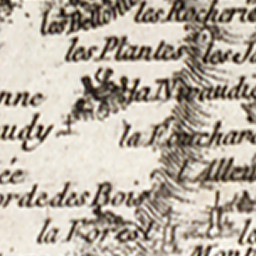 les Bellonne
les Rocherie
les Plantes
les J
nne
la Niraudi
audy
la Fouchar
ée
l'Alleu
orde des Bois
la Forest
le
Mont